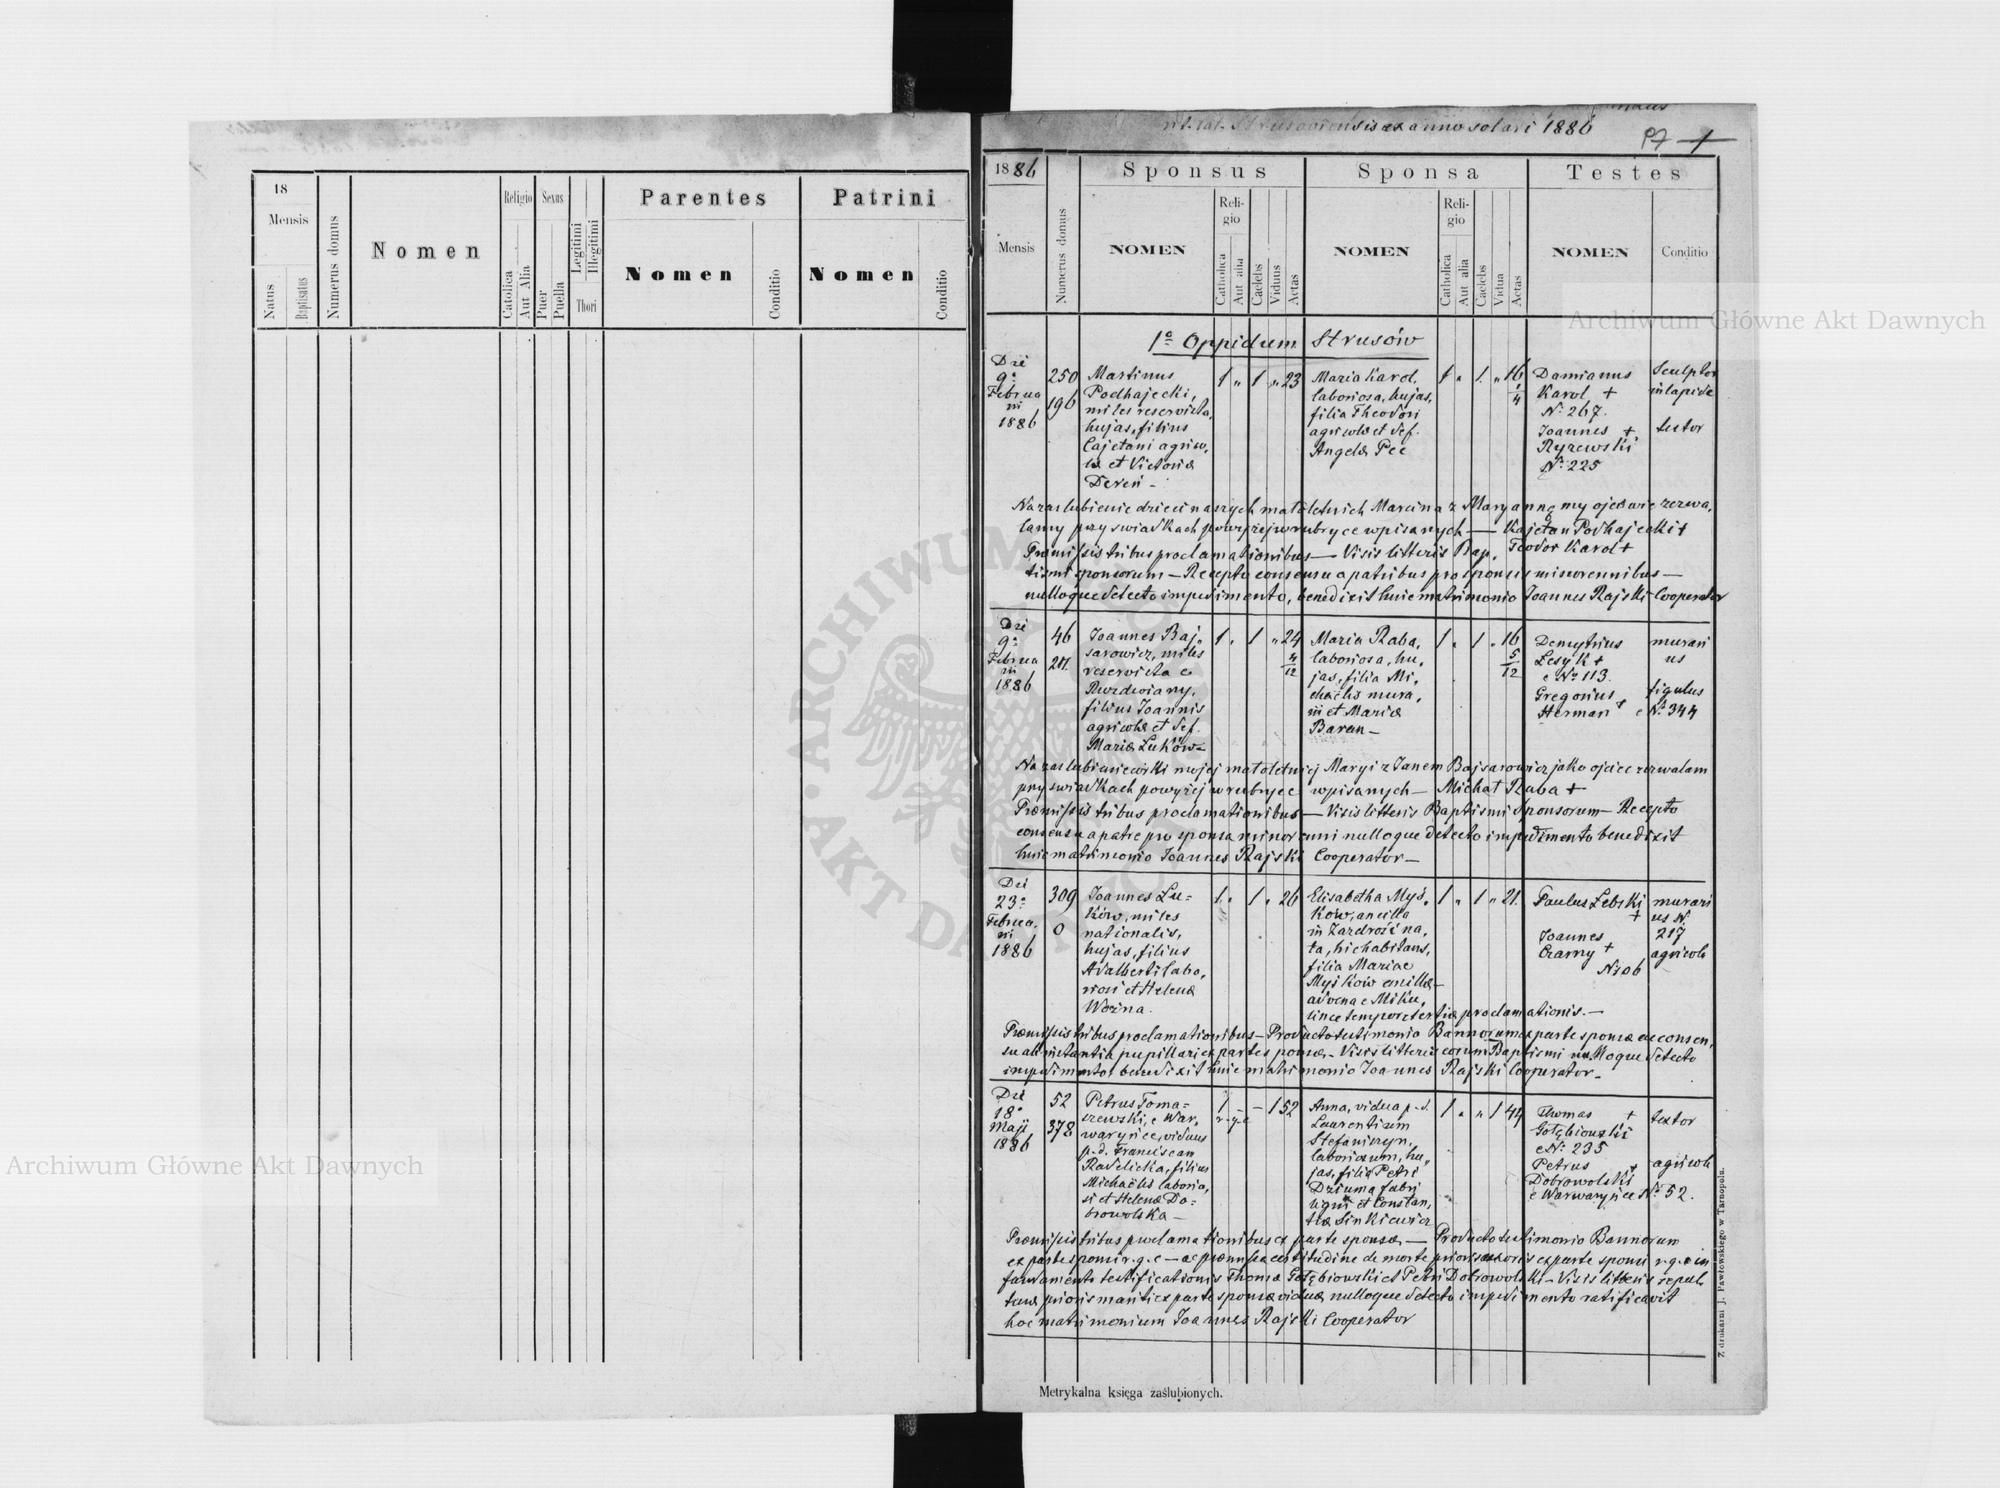 18
Mensis
Natus
Baptisatus
Numerus domus
Nomen
Religio
Catolica
Aut Alia
Sexus
Puer
Puella
Legitimi
Illegitimi
Thori
Parentes
Nomen
Conditio
Patrini
Nomen
Conditio
anno solari 1886
1886
Mensis
Numerus domus
Sponsus
NOMEN
Reli-
gio
Catholica
Aut alia
Caelebs
Viduus
Aetas
Sponsa
NOMEN
Reli-
gio
Catholica
Aut alia
Caelebs
Vidua
Aetas
Testes
NOMEN
Conditio
1º Oppidum Strusów
9ª
Februa
rii
1886
250
196
Martinus
Podhajecki,
miles reservista,
hujas, filius
Cajetani agrico,
læ et Victoriæ
Dereń -
1 " 1 " 23
Maria Karol,
laboriosa, hujas,
filia Theodori
agricolæ et def.
Angelæ Pec
1 " 1 " 16
1
4
Damianus
Karol +
Nº 267.
Joannes +
Ryzewski
Nº 225
Sculptor
in lapide
textor
Na zaslubienie dzieci naszych maloletnich Marcina z Maryanną my ojcowie zezwa,
lamy przy swiadkach powyżej w rubryce wpisanych — Kajetan Podhajecki +
Teodor Karol +
Præmissis tribus proclamationibus — Visis litteris Bap,
tismi sponsorum — Recepto consensu a patribus pro sponsis minorennibus —
nulloque detecto impedimento, benedixit huic matrimonio Joannes Rajski Cooperator
9ª
Februa
rii
1886
46
Joannes Baj,
sarowicz, miles
reservista e
filius Joannis
agricolæ et def.
Mariæ Luków -
1 " 1 " 24
4
12
Maria Raba,
laboriosa, hu,
jas, filia Mi,
chaëlis mura,
rii et Mariæ
Baran -
1 " 1 " 16
5
12
Demytrius
Lesyk +
e Nº 113.
Gregorius +
Herman
murari
us
figulus
e Nº 344
Na zaslubienie córki mojej maloletniej Maryi z Janem Bajsarowicz jako ojciec zezwalam
przy swiadkach powyżej w rubryce wpisanych — Michał Raba +
Præmissis tribus proclamationibus — Visis litteris Baptismi Sponsorum — Recepto
consensu a patre pro sponsa minorenni nulloque detecto impedimento benedixit
huic matrimonio Joannes Rajski Cooperator —
23ª
Februa,
rii
1886
309
0
Joannes Lu=
ków, miles
nationalis,
hujas, filius
Adalberti labo,
riosi et Helenæ
Woźna.
1 " 1 " 26
Elisabetha Myś,
ków, ancilla
in Zazdrość na,
ta, hic habitans,
filia Mariae
Myśków ancillæ
advena e Miku,
lince tempore tertiæ proclamationis. —
1 " 1 " 21.
Paulus Lebski
+
Joannes
Czarny +
murari
us N.
217
agricola
Præmissis tribus proclamationibus — Producto testimonio Bannorum ex parte sponsæ ac consen,
su ab instantia pupillari ex parte sponsæ — Visis litteris eorum Baptismi nulloque detecto
impedimento, benedixit huic matrimonio Joannes Rajski Cooperator —
18ª
Maji
1886
52
378
Petrus Toma=
szewski, e War,
waryńce, viduus
p. d. Franciscam
filius
Michaëlis laborio,
si et Helenæ Do=
browolska —
1 - - 1 52
r. g. c
Anna, vidua p. d.
Laurentium
Stefaniszyn,
laboriosum, hu,
jas, filia Petri
Dziuma fabri
lignarii et Constan,
tiæ Sinkiewicz
1 " " 1 44
Thomas +
Gołębiowski
e Nº 235
Petrus +
Dobrowolski
e Warwaryńce Nº 52.
textor
agricola
Præmissis tribus proclamationibus ex parte sponsæ — Producto testimonio Bannorum
ex parte sponsi r. g. c — certitudine de morte prioris uxoris ex parte sponsi r. g. c in
juramento testificationis Thomæ Gołębiowski et Petri Dobrowolski — Visis litteris sepul
turæ prioris mariti ex parte sponsæ viduæ nulloque detecto impedimento ratificavit
hoc matrimonium Joannes Rajski Cooperator
Metrykalna księga zaślubionych.
Z drukarni J. Pawłowskiego w Tarnopolu.
Archiwum Główne Akt Dawnych
Archiwum Główne Akt Dawnych